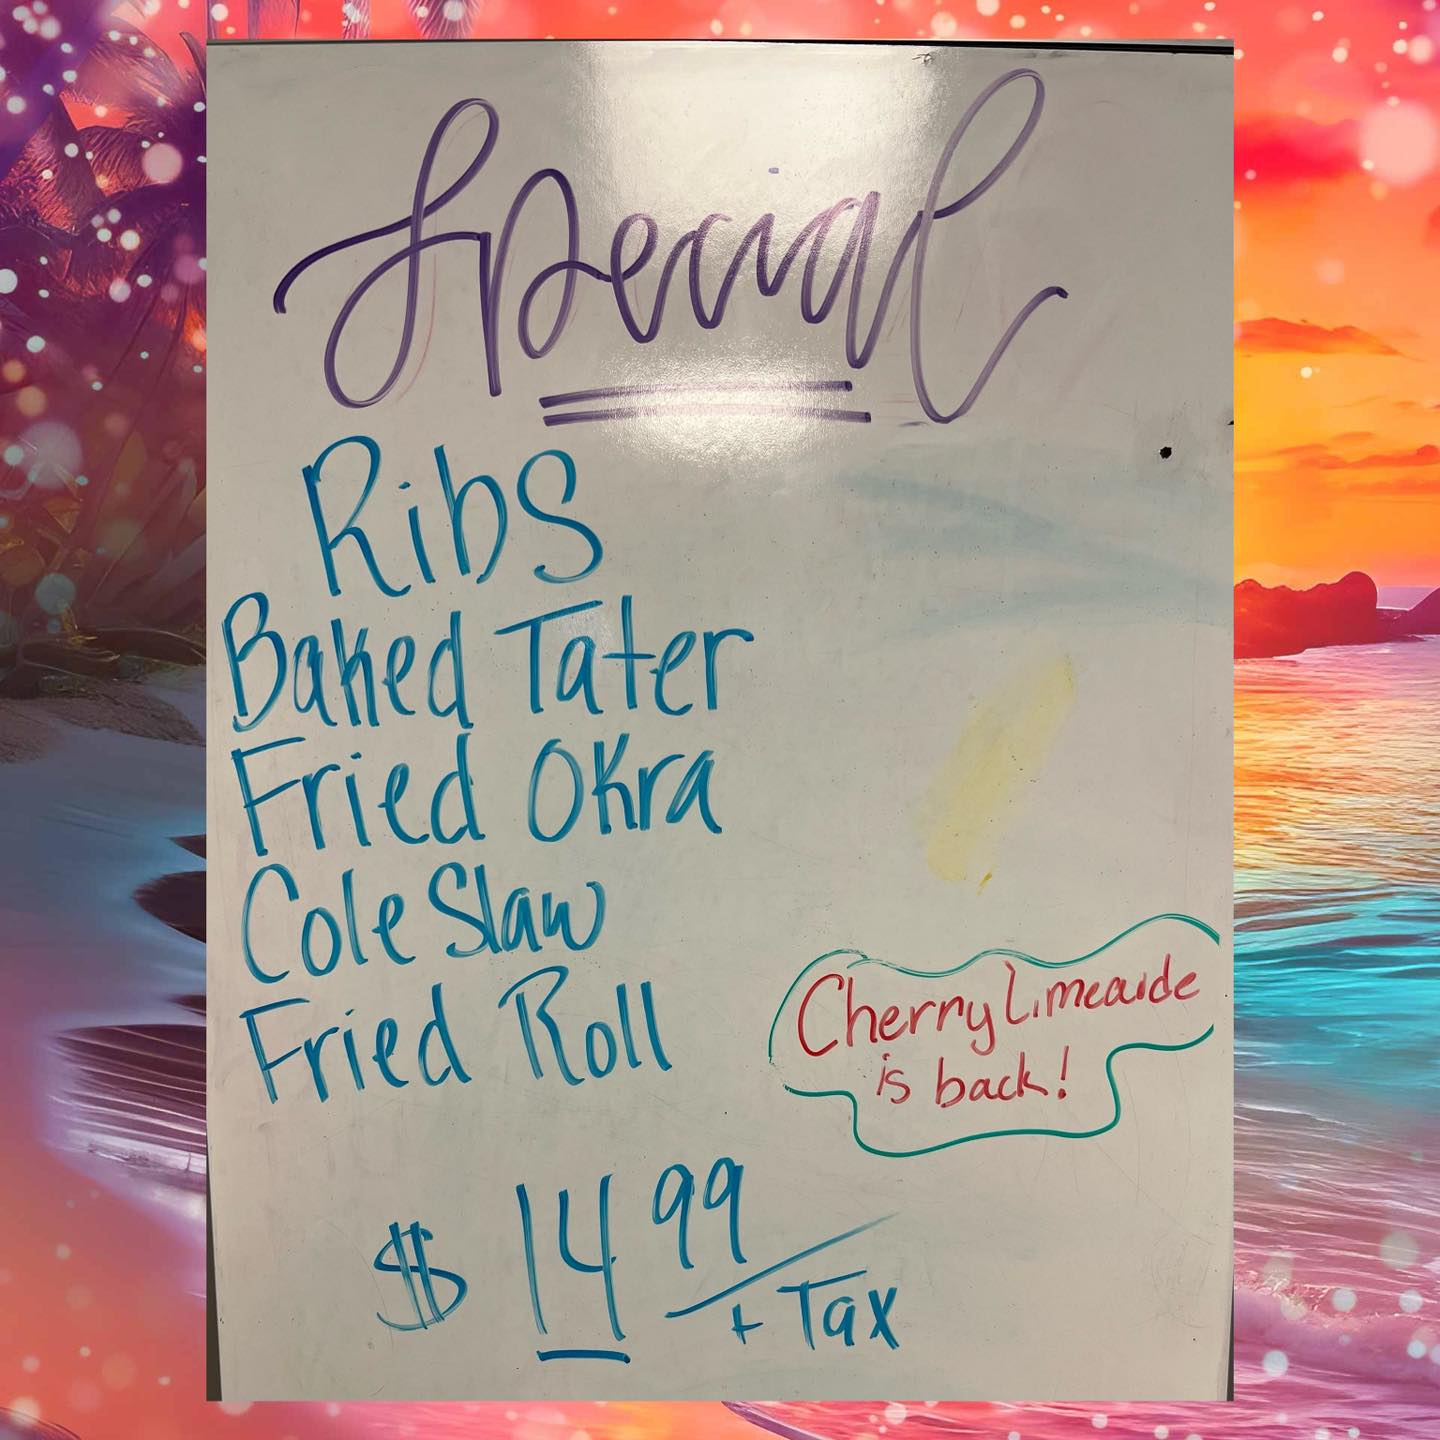 Special
Ribs
Baked Tater
Fried Okra
Cole Slaw
Fried Roll
Cherry Limeade
is back!
$ 14 99
+ Tax